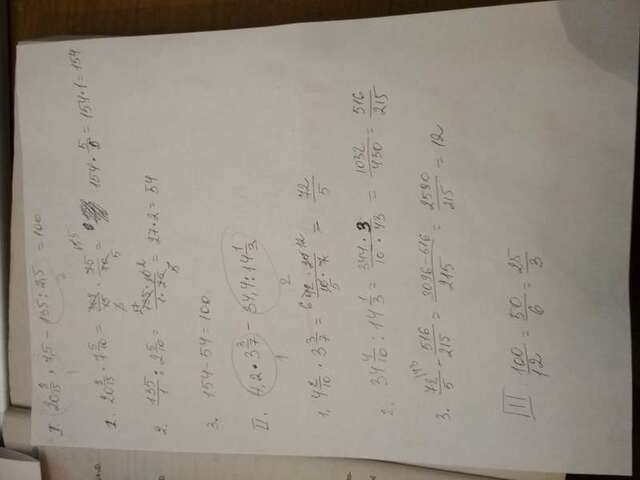 I 20 8/15 · 7,5 − 135 : 2,5 = 100
1. 20 8/15 · 7 5/10 = 308/15 · 75/10 = 154 · 5/5 = 154 · 1 = 154
2. 135/1 : 2 5/10 = 135 · 10/1 · 25 = 27 · 2 = 54
3. 154 − 54 = 100
II. 4,2 · 3 3/7 − 34,4 : 14 1/3
1. 4 2/10 · 3 3/7 = 42 · 24/10 · 7 = 72/5
2. 34 4/10 : 14 1/3 = 344 · 3/10 · 43 = 1032/430 = 516/215
3. 72/5 − 516/215 = 3096 − 516/215 = 2580/215 = 12
III 100/12 = 50/6 = 25/3